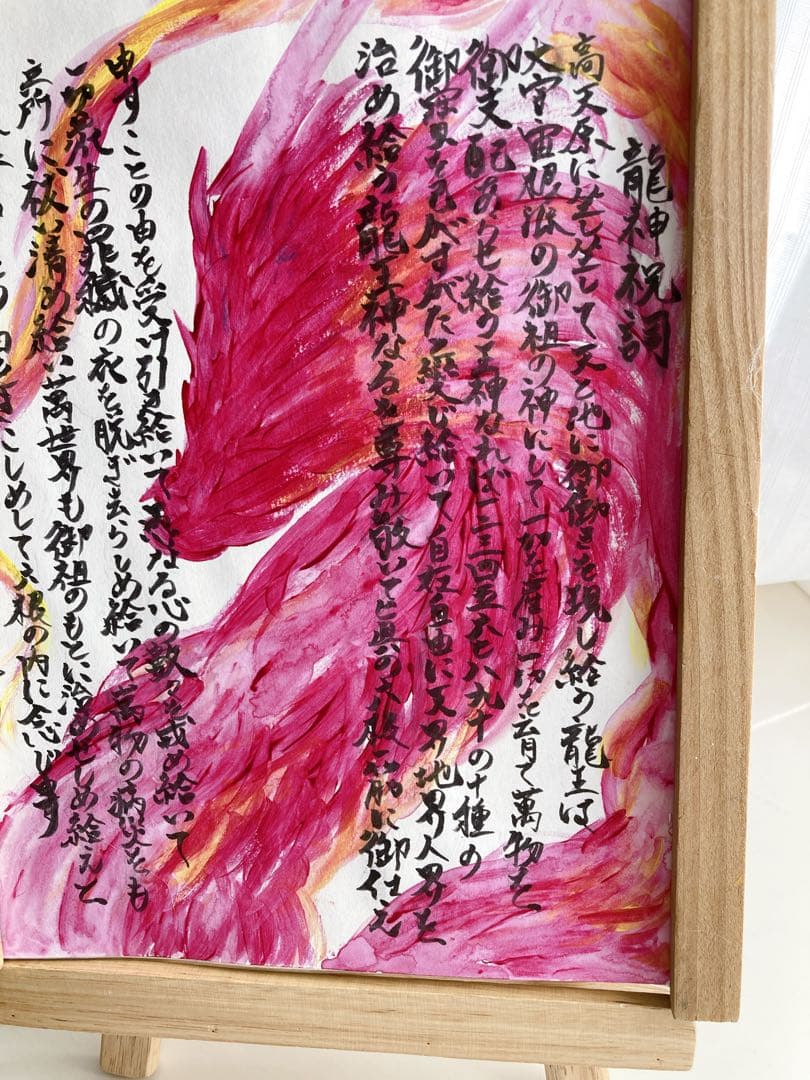 龍神祝詞
高天原に坐し坐して天と地に御働きを現し給う龍王は
大宇宙根源の御祖の神にして一切を産み一切を育て萬物を
御支配あらせ給う王神なれば一二三四五六七八九十の十種の
御寶を己がすがたと変じ給いて自在自由に天界地界人界を
治め給う龍王神なるを尊み敬いて眞の六根一筋に御仕え
申すことの由を受け引き給いて愚なる心の数々を戒め給いて
一切衆生の罪穢の衣を脱ぎ去らしめ給いて萬物の病災をも
立所に祓い清め給い萬世界も御祖のもとに治めせしめ給えと
こしめして六根の内に念じます